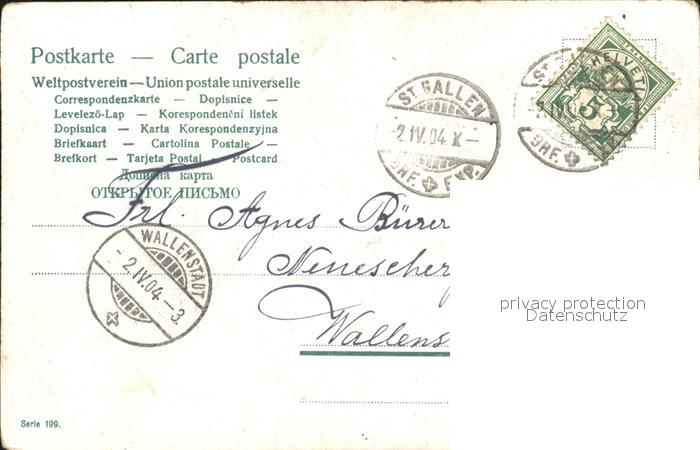 Postkarte — Carte postale
Weltpostverein — Union postale universelle
Correspondenzkarte — Dopisnice —
Levelező-Lap — Korespondenční listek
Dopisnica — Karta Korespondenzyjna
Briefkaart — Cartolina Postale —
Brefkort — Tarjeta Postal — Postcard
Дописна карта
ОТКРЫТОЕ ПИСЬМО
ST. GALLEN
-2.IV.04 X-
BHF. EXP.
HELVETIA
5
BHF.
Frl. Agnes
WALLENSTADT
-2.IV.04 -3
Wallens
privacy protection
Datenschutz
Serie 199.